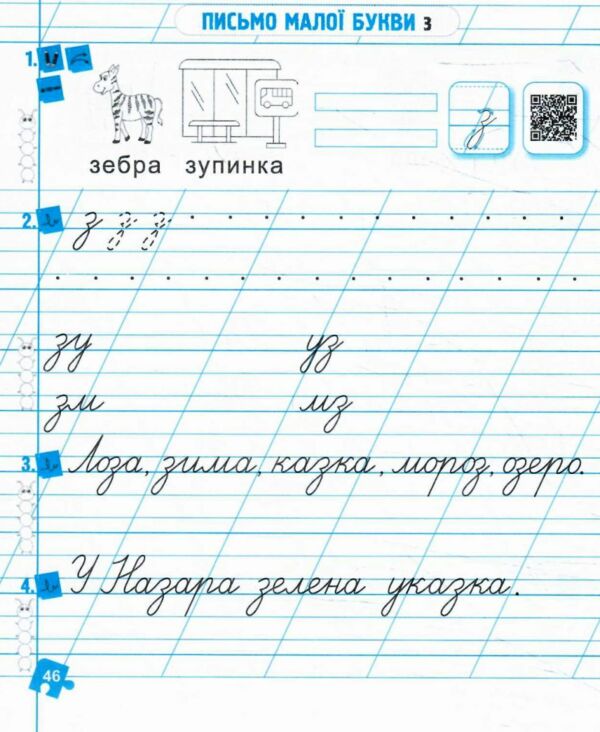 ПИСЬМО МАЛОЇ БУКВИ З
1.
зебра зупинка
з
2. з з з
зу уз
зм мз
3. Лоза, зима, казка, мороз, озеро.
4. У Назара зелена указка.
46